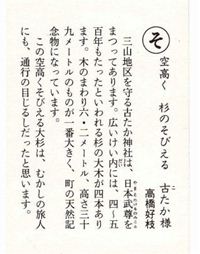 そ
空高く 杉のそびえる 古たか様
高橋好枝
三山地区を守る古たか神社は、日本武尊を
まつってあります。広いけい内には、四~五
百年もたったといわれる杉の大木が四本あり
ます。木のまわり六・二メートル、高さ三十
九メートルのものが一番大きく、町の天然記
念物になっています。
この空高くそびえる大杉は、むかしの旅人
にも、通行の目じるしだったと思います。